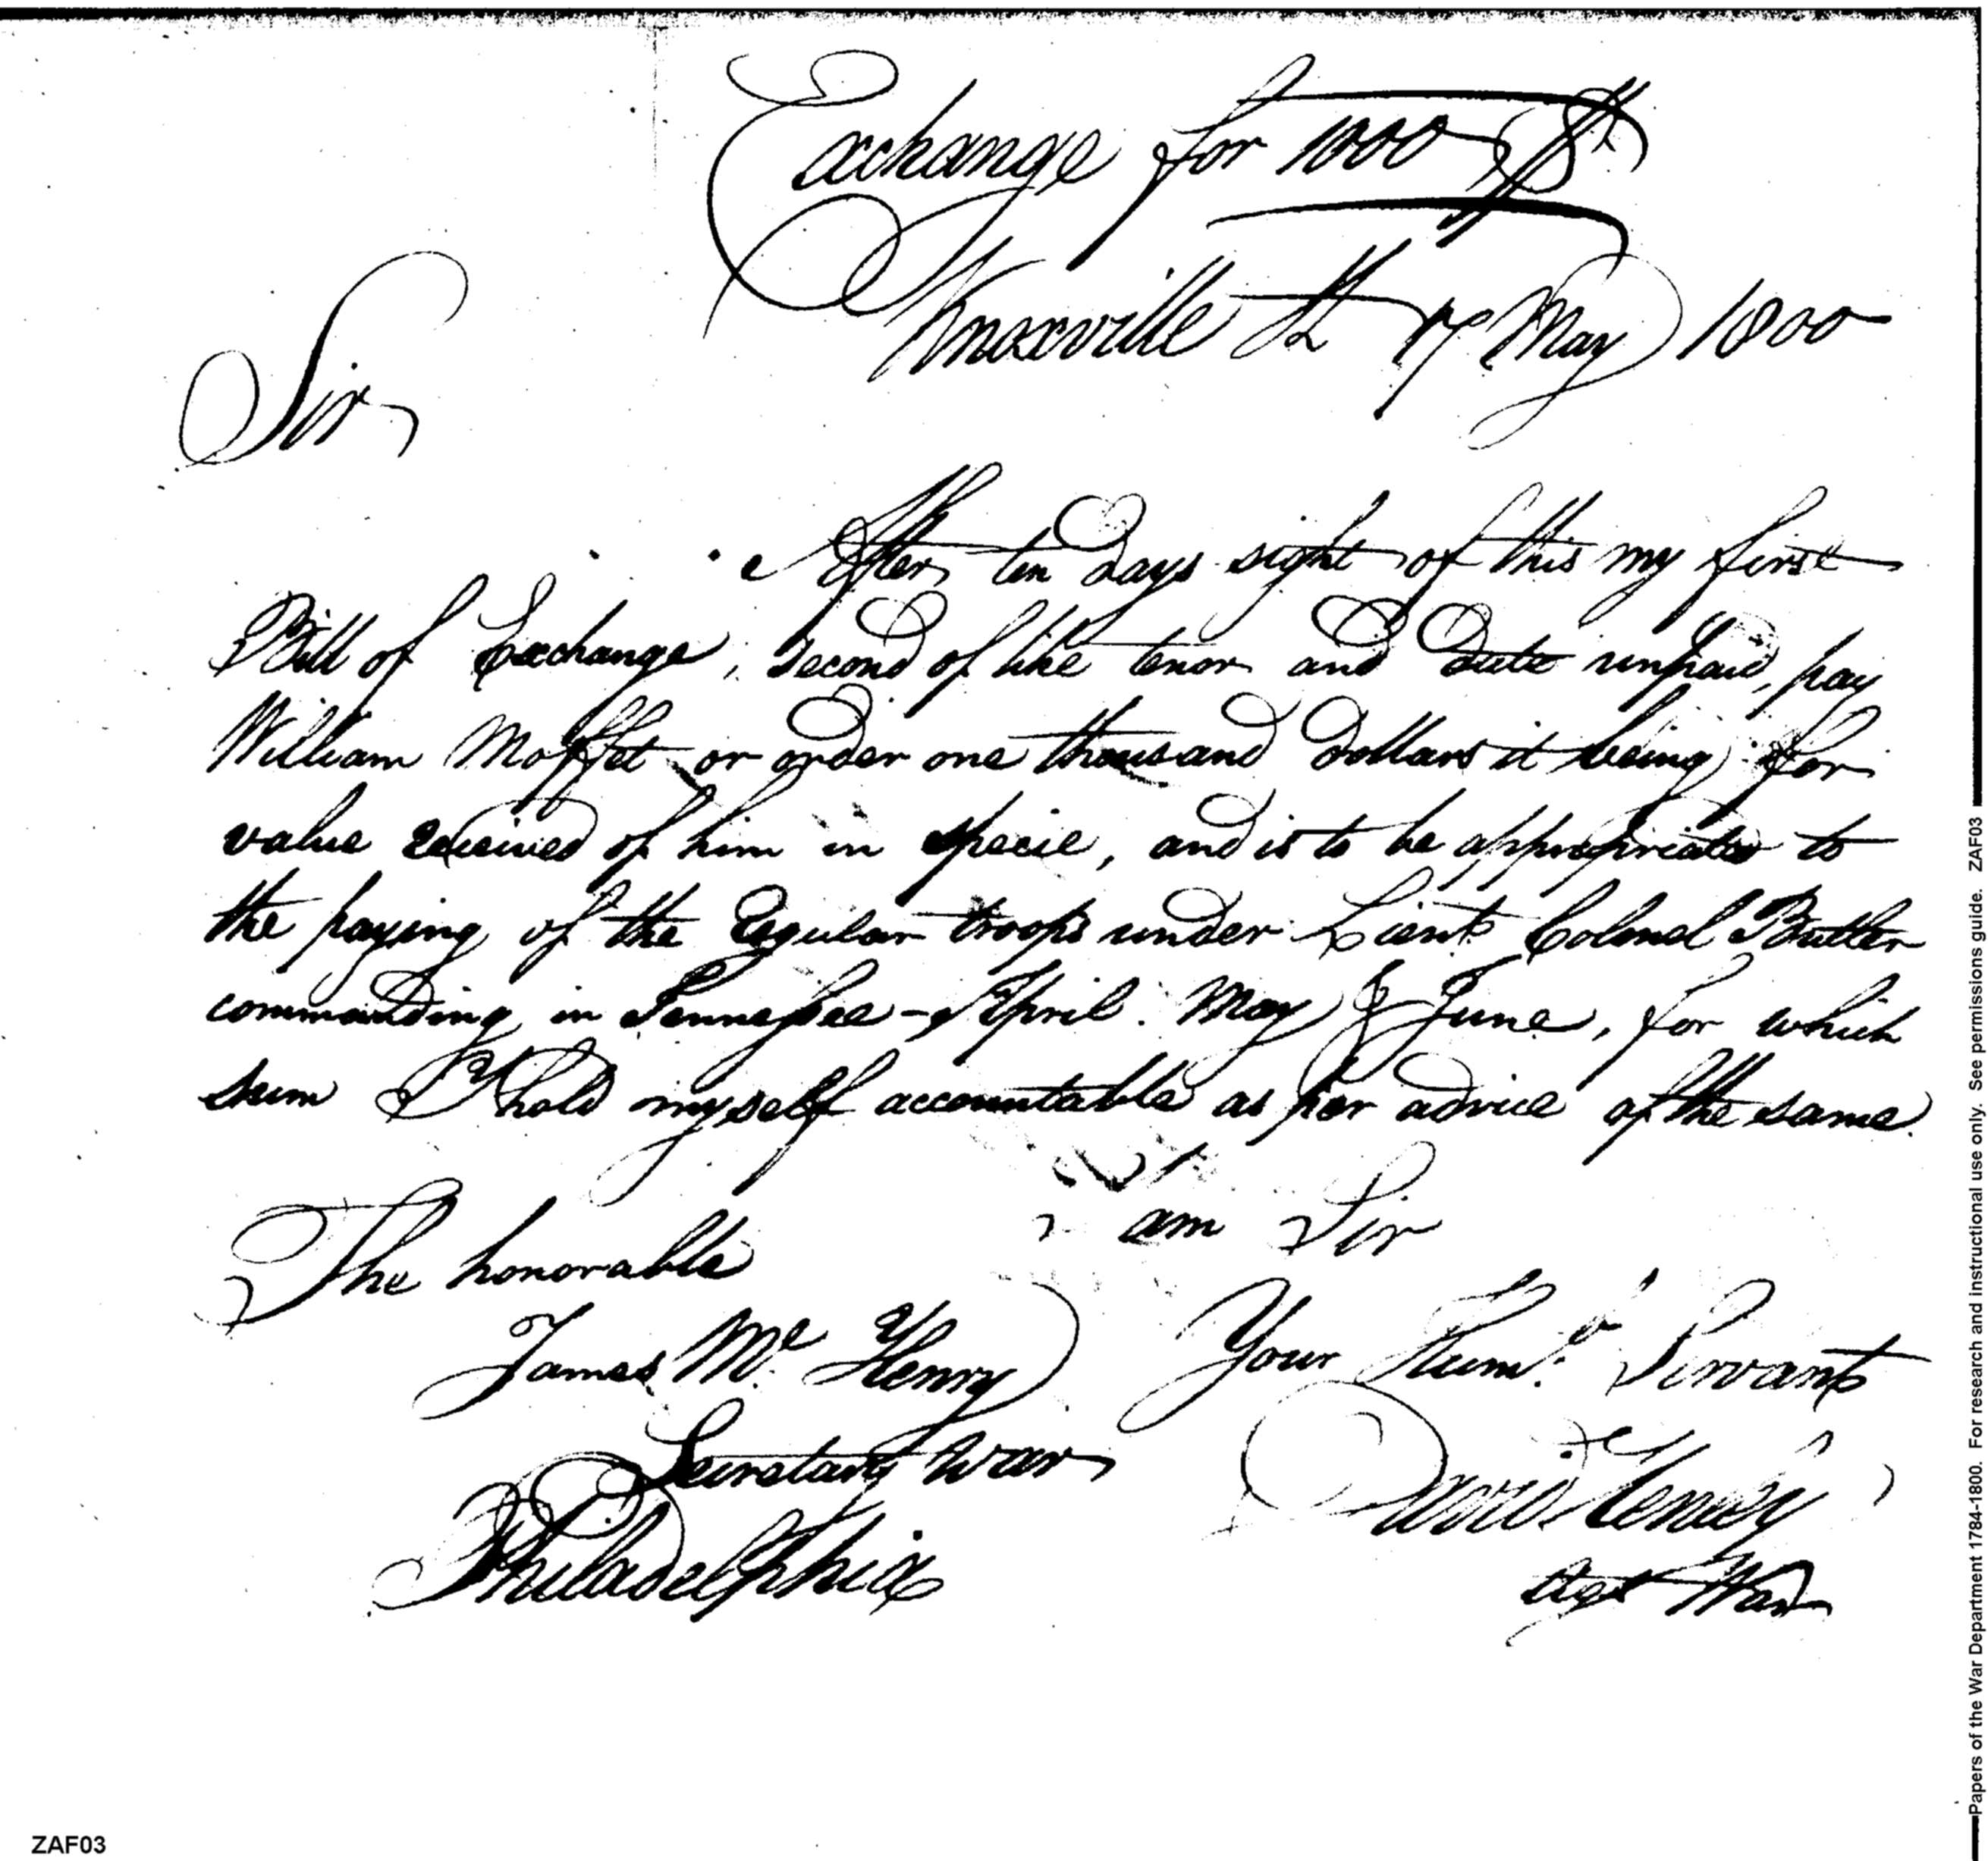 Exchange for 1000 $
Knoxville 17 May 1800
Sir,
After ten days sight of this my first
Bill of Exchange, second of like tenor and date unpaid, pay
William Moffet or order one thousand dollars it being for
value received of him in specie, and is to be appropriated to
the paying of the Regular troops under Lieut Colonel Butler
commanding in Tennessee - April. May & June, for which
sum I hold myself accountable as per advice of the same.
I am Sir
The honorable
James Mc Henry Your Humb. Servant
Secretary War David Henley
Philadelphia Agt War
ZAF03
Papers of the War Department 1784-1800. For research and instructional use only. See permissions guide. ZAF03